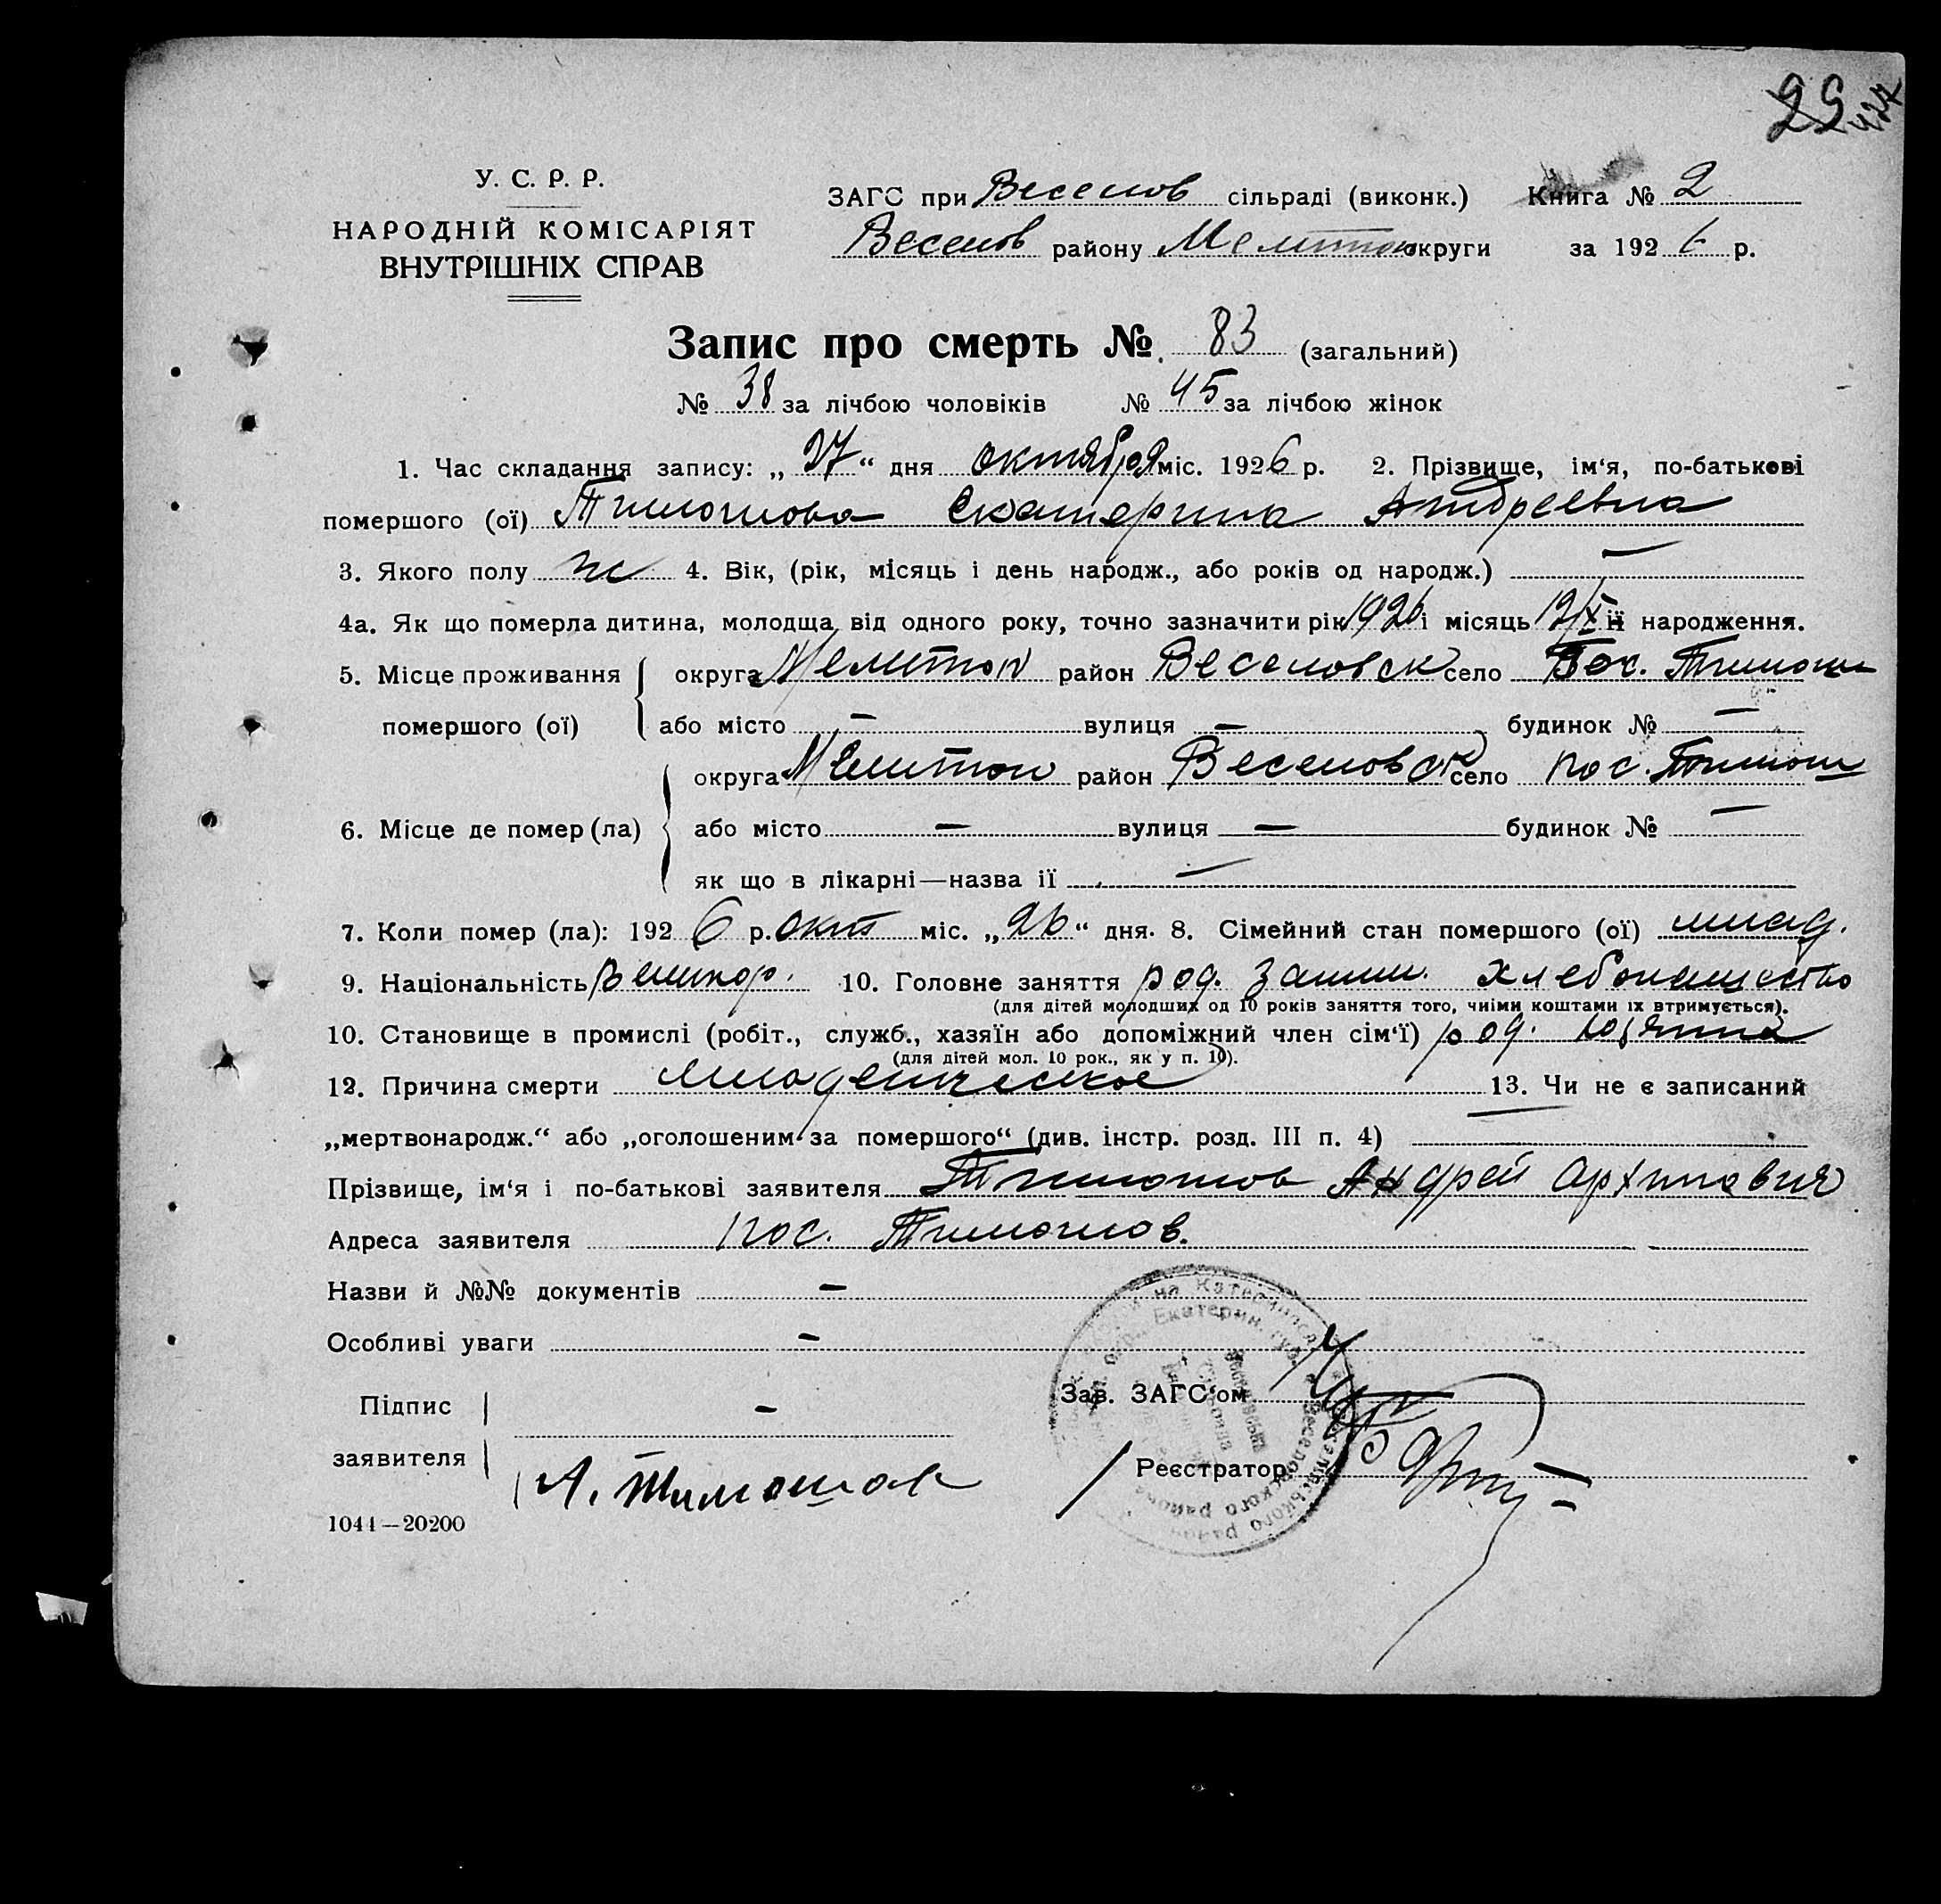 29
У. С. Р. Р.
НАРОДНІЙ КОМІСАРІЯТ
ВНУТРІШНІХ СПРАВ
ЗАГС при Веселов сільраді (виконк.) Книга № 2
Веселов району Мелитоп округи за 1926 р.
Запис про смерть № 83 (загальний)
№ 38 за лічбою чоловіків № 45 за лічбою жінок
1. Час складання запису: „27“ дня октября міс. 1926 р. 2. Прізвище, ім‘я, по-батькові
помершого (ої) Тимошова Екатерина Андреевна
3. Якого полу ж 4. Вік, (рік, місяць і день народж., або років од народж.) —
4а. Як що померла дитина, молодща від одного року, точно зазначити рік 1926 і місяць 12/X її народження.
5. Місце проживання округа Мелитоп район Веселовск село Пос. Тимош
помершого (ої) або місто — вулиця — будинок № —
округа Мелитоп район Веселовск село пос. Тимош
6. Місце де помер (ла) або місто — вулиця — будинок № —
як що в лікарні—назва її —
7. Коли помер (ла): 1926 р. окт міс. „26“ дня. 8. Сімейний стан помершого (ої) млад.
9. Національність Великор. 10. Головне заняття род. заним. хлебопашество
(для дітей молодших од 10 років заняття того, чиїми коштами їх втримується).
10. Становище в промислі (робіт., служб., хазяїн або допоміжний член сім‘ї) род. хозяина
(для дітей мол. 10 рок., як у п. 10).
12. Причина смерти младенческое 13. Чи не є записаний
„мертвонародж.“ або „оголошеним за помершого“ (див. інстр. розд. III п. 4) —
Прізвище, ім‘я і по-батькові заявителя Тимошов Андрей Архипович
Адреса заявителя пос. Тимошов.
Назви й №№ документів —
Особливі уваги —
Підпис —
заявителя А. Тимошов
Зав. ЗАГС‘ом
Реєстратор
Екатерин. губ.
Веселовского района
1044—20200